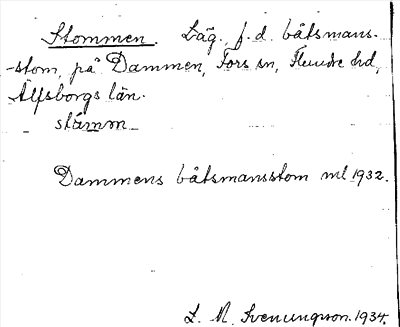 Stommen. Läg. f. d. båtsmans-
-stom, på Dammen, Fors sn, Flundre hd,
Älfsborgs län.
stämm
Dammens båtsmansstom ml 1932.
L. N. Svenungsson. 1934.